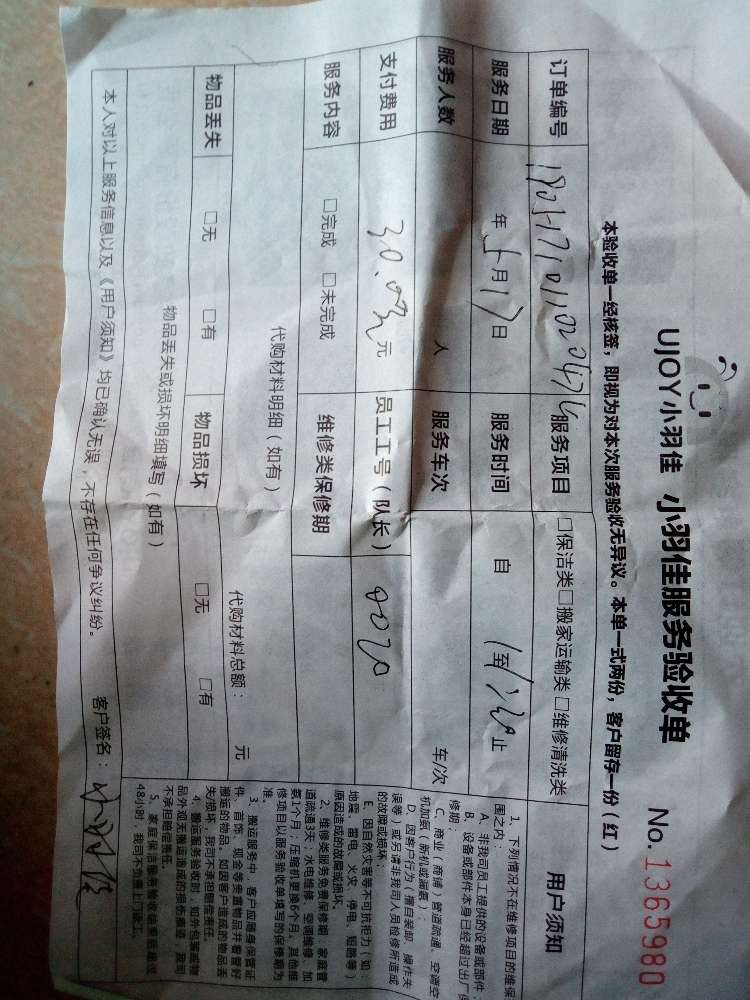 UJOY小羽佳 小羽佳服务验收单 No. 1365980
本验收单一经核签，即视为对本次服务验收无异议。本单一式两份，客户留存一份（红）
订单编号 服务项目 □保洁类□搬家运输类 □维修清洗类
服务日期 年 5月17日 服务时间 自 至 止
服务人数 人 服务车次 车/次
支付费用 30.0元 员工工号（队长） 9020
服务内容 □完成 □未完成 维修类保修期
代购材料明细（如有） 代购材料总额： 元
物品丢失 □无 □有 物品损坏 □无 □有
物品丢失或损坏明细填写（如有）
本人对以上服务信息以及《用户须知》均已确认无误，不存在任何争议纠纷。 客户签名：
用户须知
1、下列情况不在维修项目的维保
围之内：
A、非我司员工提供的设备或部件
B、设备或部件本身已经超过出厂
修期；
C、商业（商铺）管道疏通，空调空
机加氨（新机或漏氨）；
D、因客户行为（擅自装卸、操作失
误等）或另请非我司人员检修所造成
的故障或损坏；
E、因自然灾害等不可抗拒力（如：
地震、雷电、火灾、停电、短路等）
原因造成的故障或损坏。
2、维修类服务免费保修期：家庭管
道疏通3天；水电维修、空调维修、加
氨1个月；压缩机更换6个月。其他维
修项目以服务验收单填写的保修期为
准。
3、搬运服务中，客户应随身保管证
件、首饰、现金等贵重物品并看管好
搬运的物品。如因客户造成的物品丢
失/损坏，我司不承担赔偿责任。
4、搬运服务验收时，如外包装或物
品外观无搬运造成的损伤痕迹，我司
不承担赔偿责任。
5、家庭保洁服务验收结束后超过
48小时，我司不负责上门返工。